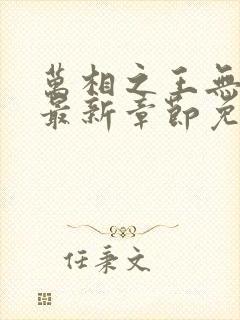 萬相之王無
最新章節免
任秉文